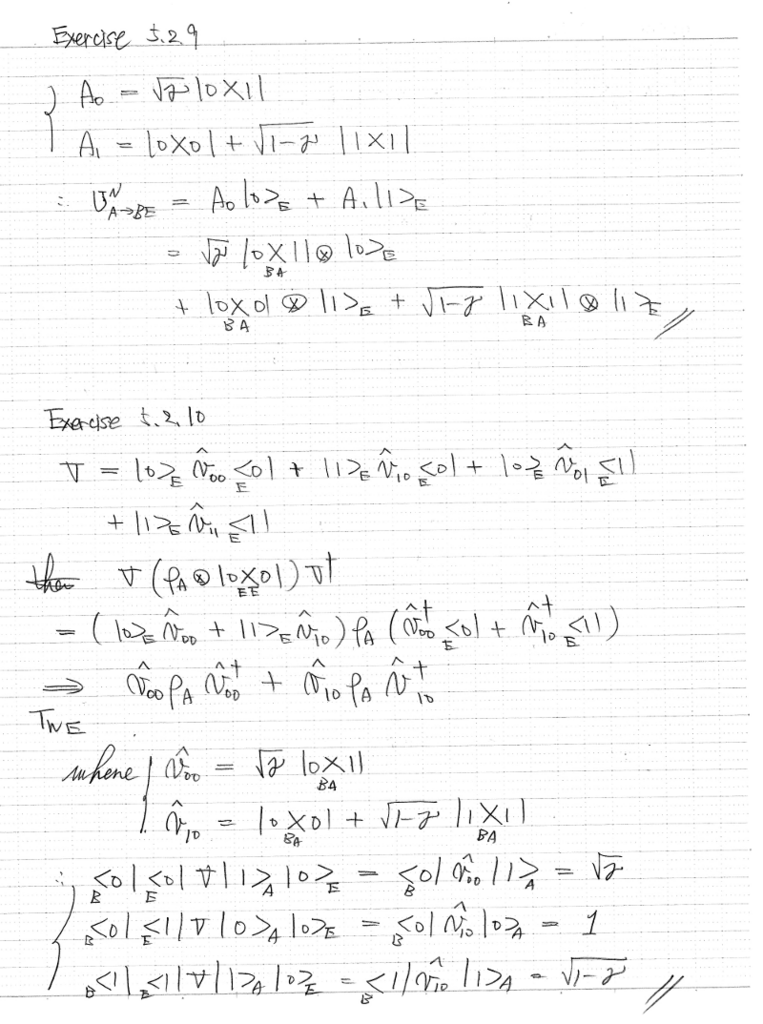 Exercise 5.2.9
A₀ = √γ |0X1|
A₁ = |0X0| + √(1-γ) |1X1|
∴ U^N_{A→BE} = A₀|0>_E + A₁|1>_E
= √γ |0X1|_{BA} ⊗ |0>_E
+ |0X0|_{BA} ⊗ |1>_E + √(1-γ) |1X1|_{BA} ⊗ |1>_E //
Exercise 5.2.10
V = |0>_E v̂₀₀ _E<0| + |1>_E v̂₁₀ _E<0| + |0>_E v̂₀₁ _E<1|
+ |1>_E v̂₁₁ _E<1|
V (ρ_A ⊗ |0X0|_{EE}) V†
= ( |0>_E v̂₀₀ + |1>_E v̂₁₀ ) ρ_A ( v̂₀₀† _E<0| + v̂₁₀† _E<1| )
⟹ v̂₀₀ ρ_A v̂₀₀† + v̂₁₀ ρ_A v̂₁₀†
Tr_E
where { v̂₀₀ = √γ |0X1|_{BA}
v̂₁₀ = |0X0|_{BA} + √(1-γ) |1X1|_{BA}
∴ _B<0| _E<0| V |1>_A |0>_E = _B<0| v̂₀₀ |1>_A = √γ
_B<0| _E<1| V |0>_A |0>_E = _B<0| v̂₁₀ |0>_A = 1
_B<1| _E<1| V |1>_A |0>_E = _B<1| v̂₁₀ |1>_A = √(1-γ) //